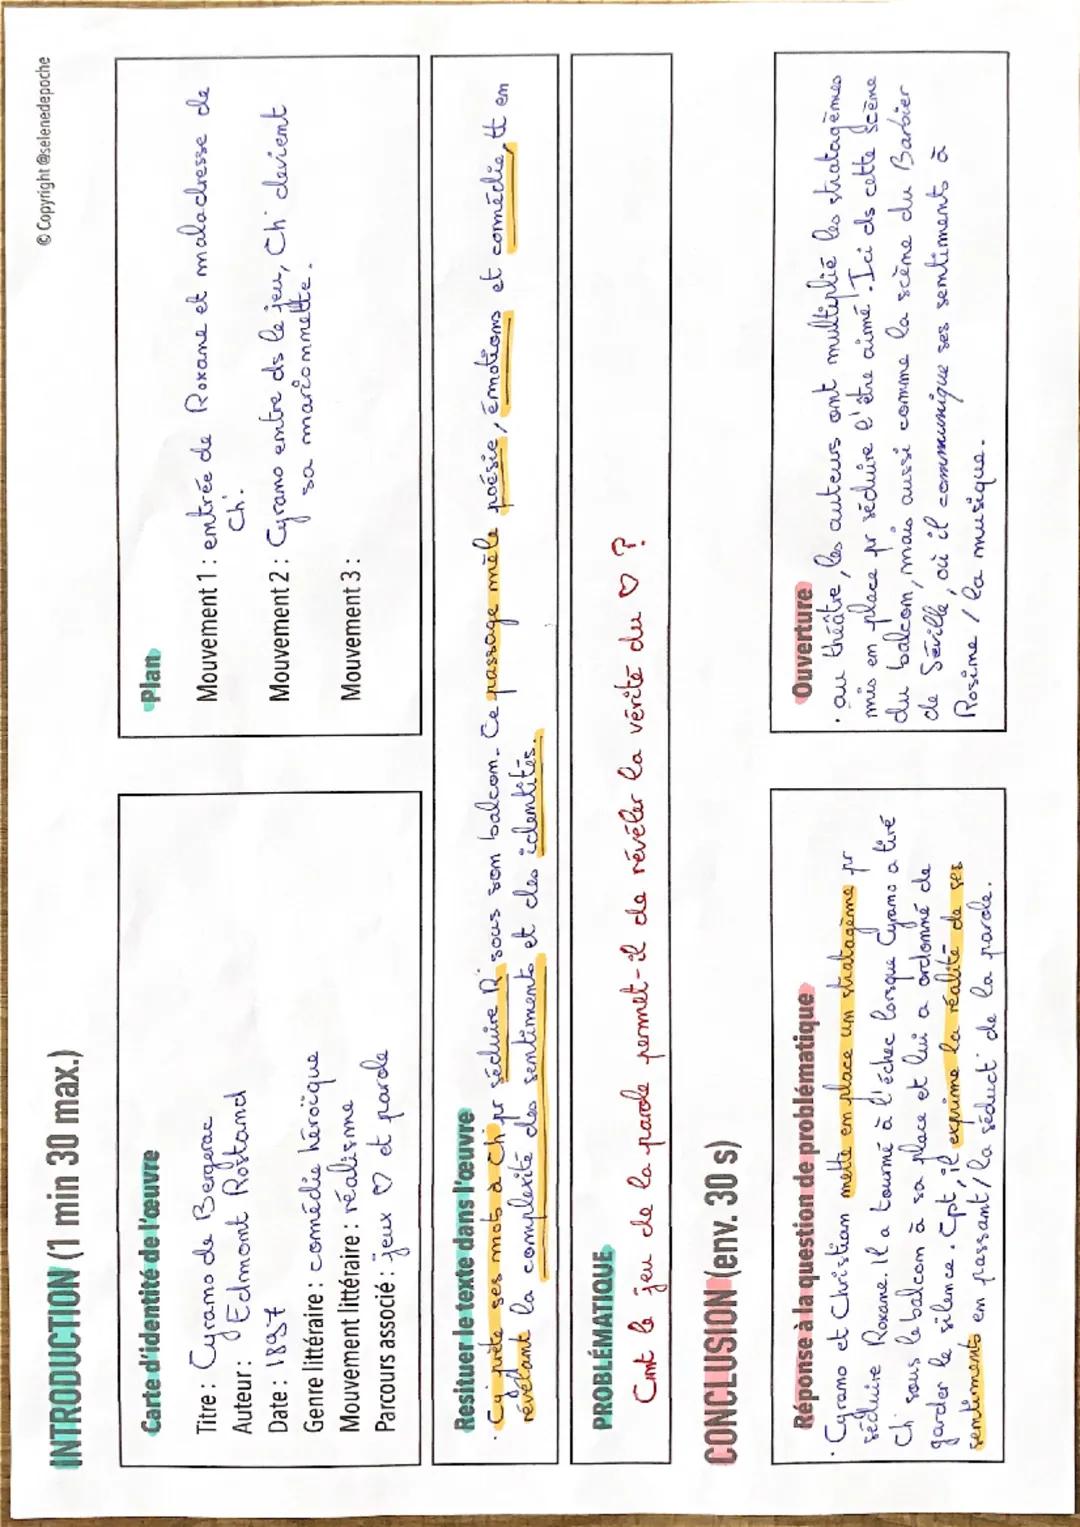 © Copyright @selenedepoche
INTRODUCTION (1 min 30 max.)
Carte d'identité de l'œuvre
Titre : Cyrano de Bergerac
Auteur : Edmont Rostand
Date : 1897
Genre littéraire : comédie héroïque
Mouvement littéraire : réalisme
Parcours associé : jeux ♡ et parole
Plan
Mouvement 1 : entrée de Roxane et maladresse de
Ch'.
Mouvement 2 : Cyrano entre ds le jeu, Ch' devient
sa marionnette.
Mouvement 3 :
Resituer le texte dans l'œuvre
• Cy' prête ses mots à Ch' pr séduire R' sous son balcon. Ce passage mêle poésie, émotions et comédie, tt en
révélant la complexité des sentiments et des identités.
PROBLÉMATIQUE
Cmt le jeu de la parole permet-il de révéler la vérité du ♡ ?
CONCLUSION (env. 30 s)
Réponse à la question de problématique
• Cyrano et Christian mette en place un stratagème pr
séduire Roxane. Il a tourné à l'échec lorsque Cyrano a tiré
Ch' sous le balcon à sa place et lui a ordonné de
garder le silence. Cpt, il exprime la réalité de ses
sentiments en passant / la séduct° de la parole.
Ouverture
• au théâtre, les auteurs ont multiplié les stratagèmes
mis en place pr séduire l'être aimé. Ici ds cette scène
du balcon, mais aussi comme la scène du Barbier
de Séville, où il communique ses sentiments à
Rosine / la musique.